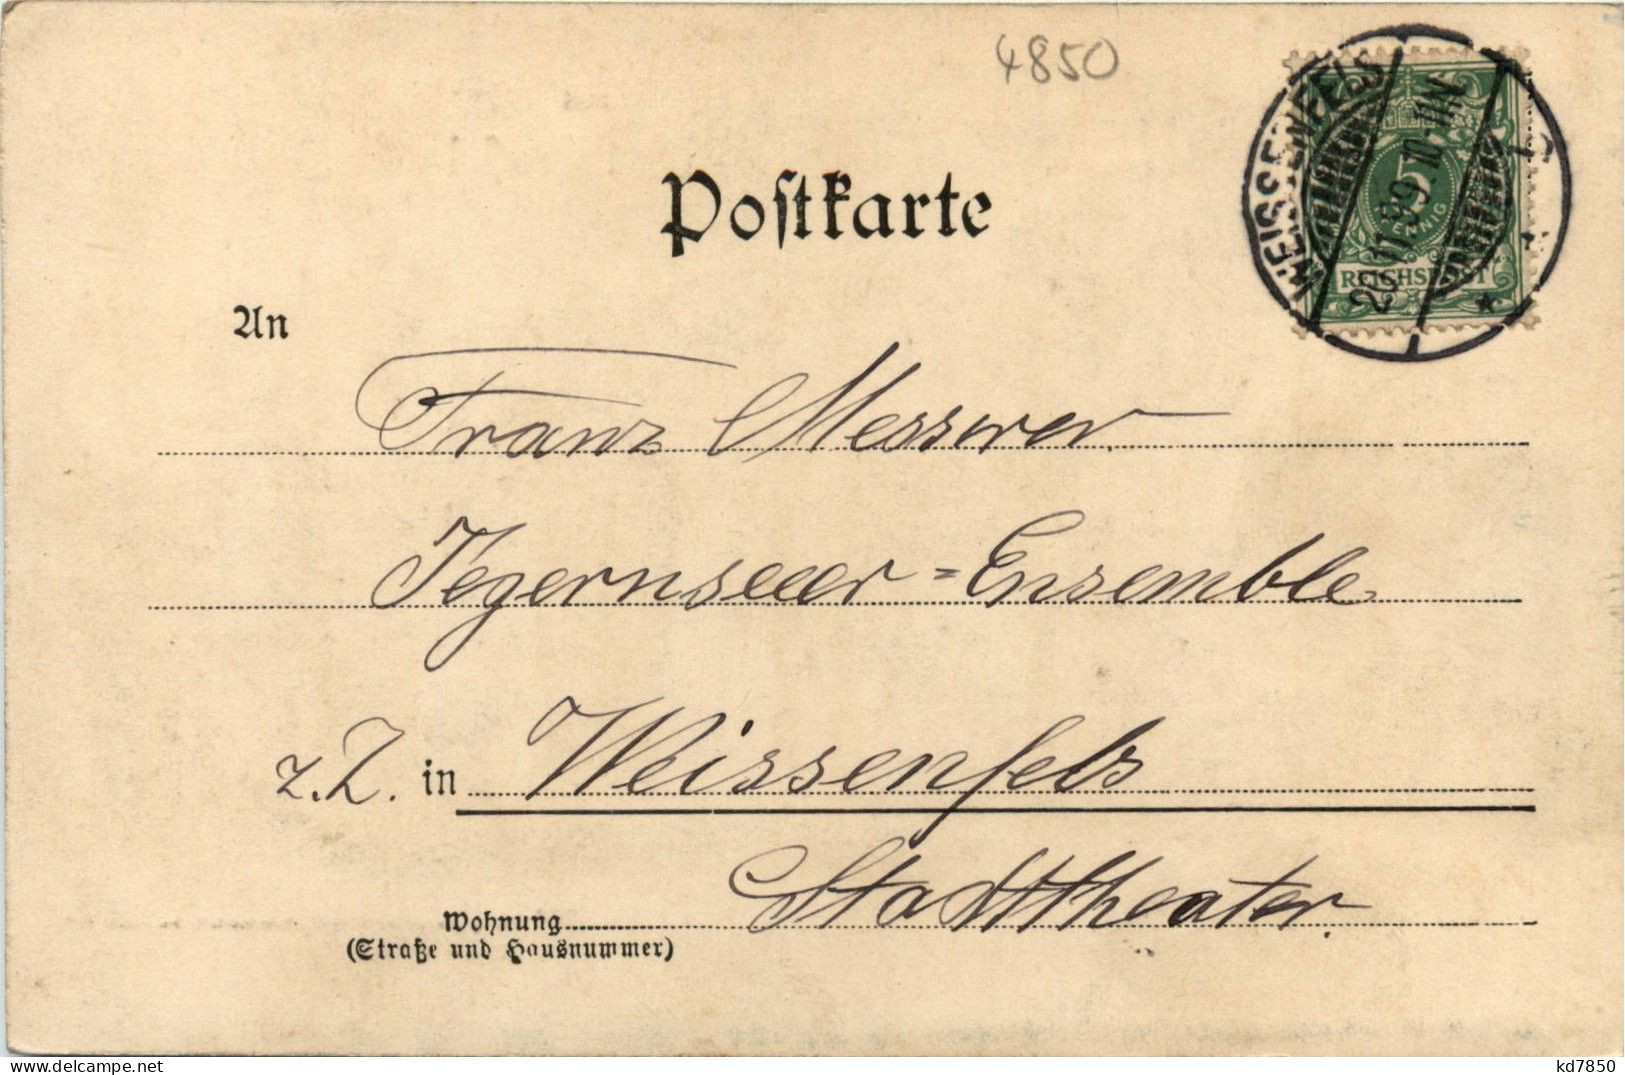 4850
Postkarte
WEISSENFELS
5
PFENNIG
REICHSPOST
An
Franz Messner
Tegernseeer-Ensemble
z.Z. in Weissenfels
Stadttheater.
Wohnung
(Straße und Hausnummer)
delcampe.net
kd7850